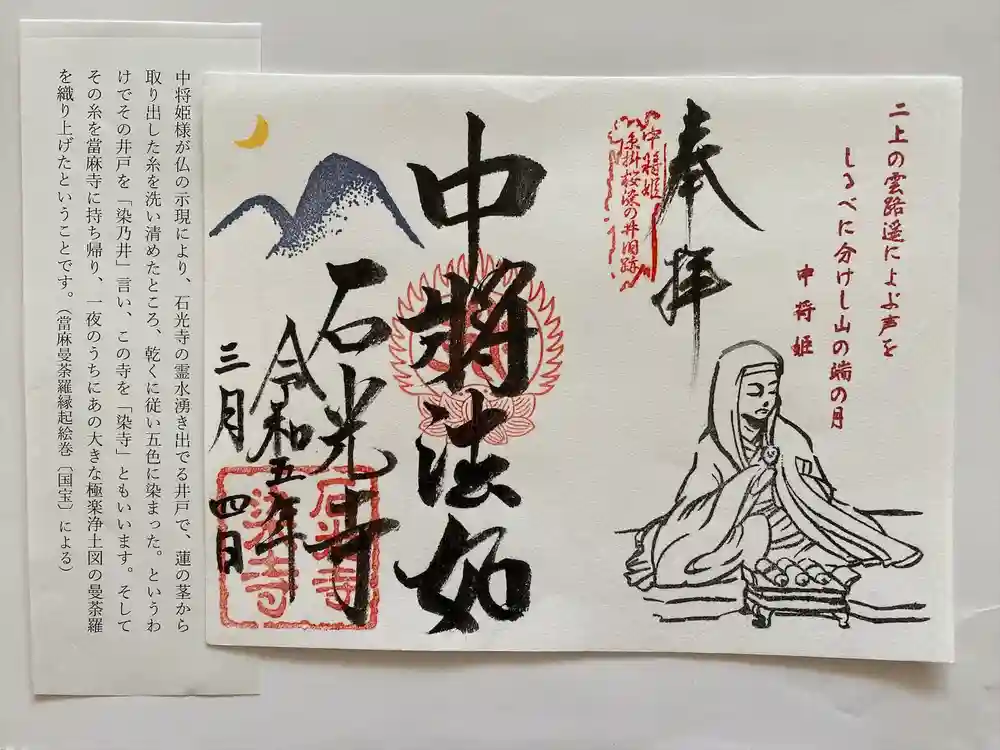 二上の雲路遥によぶ声を
しるべに分けし山の端の月
中将姫
奉拝
中将姫
糸掛桜染の井旧跡
中將法如
石光寺
令和五年
三月四日
石光寺
染寺
中将姫様が仏の示現により、石光寺の霊水湧き出でる井戸で、蓮の茎から
取り出した糸を洗い清めたところ、乾くに従い五色に染まった。というわ
けでその井戸を「染乃井」言い、この寺を「染寺」ともいいます。そして
その糸を當麻寺に持ち帰り、一夜のうちにあの大きな極楽浄土図の曼荼羅
を織り上げたということです。（當麻曼荼羅縁起絵巻〔国宝〕による）